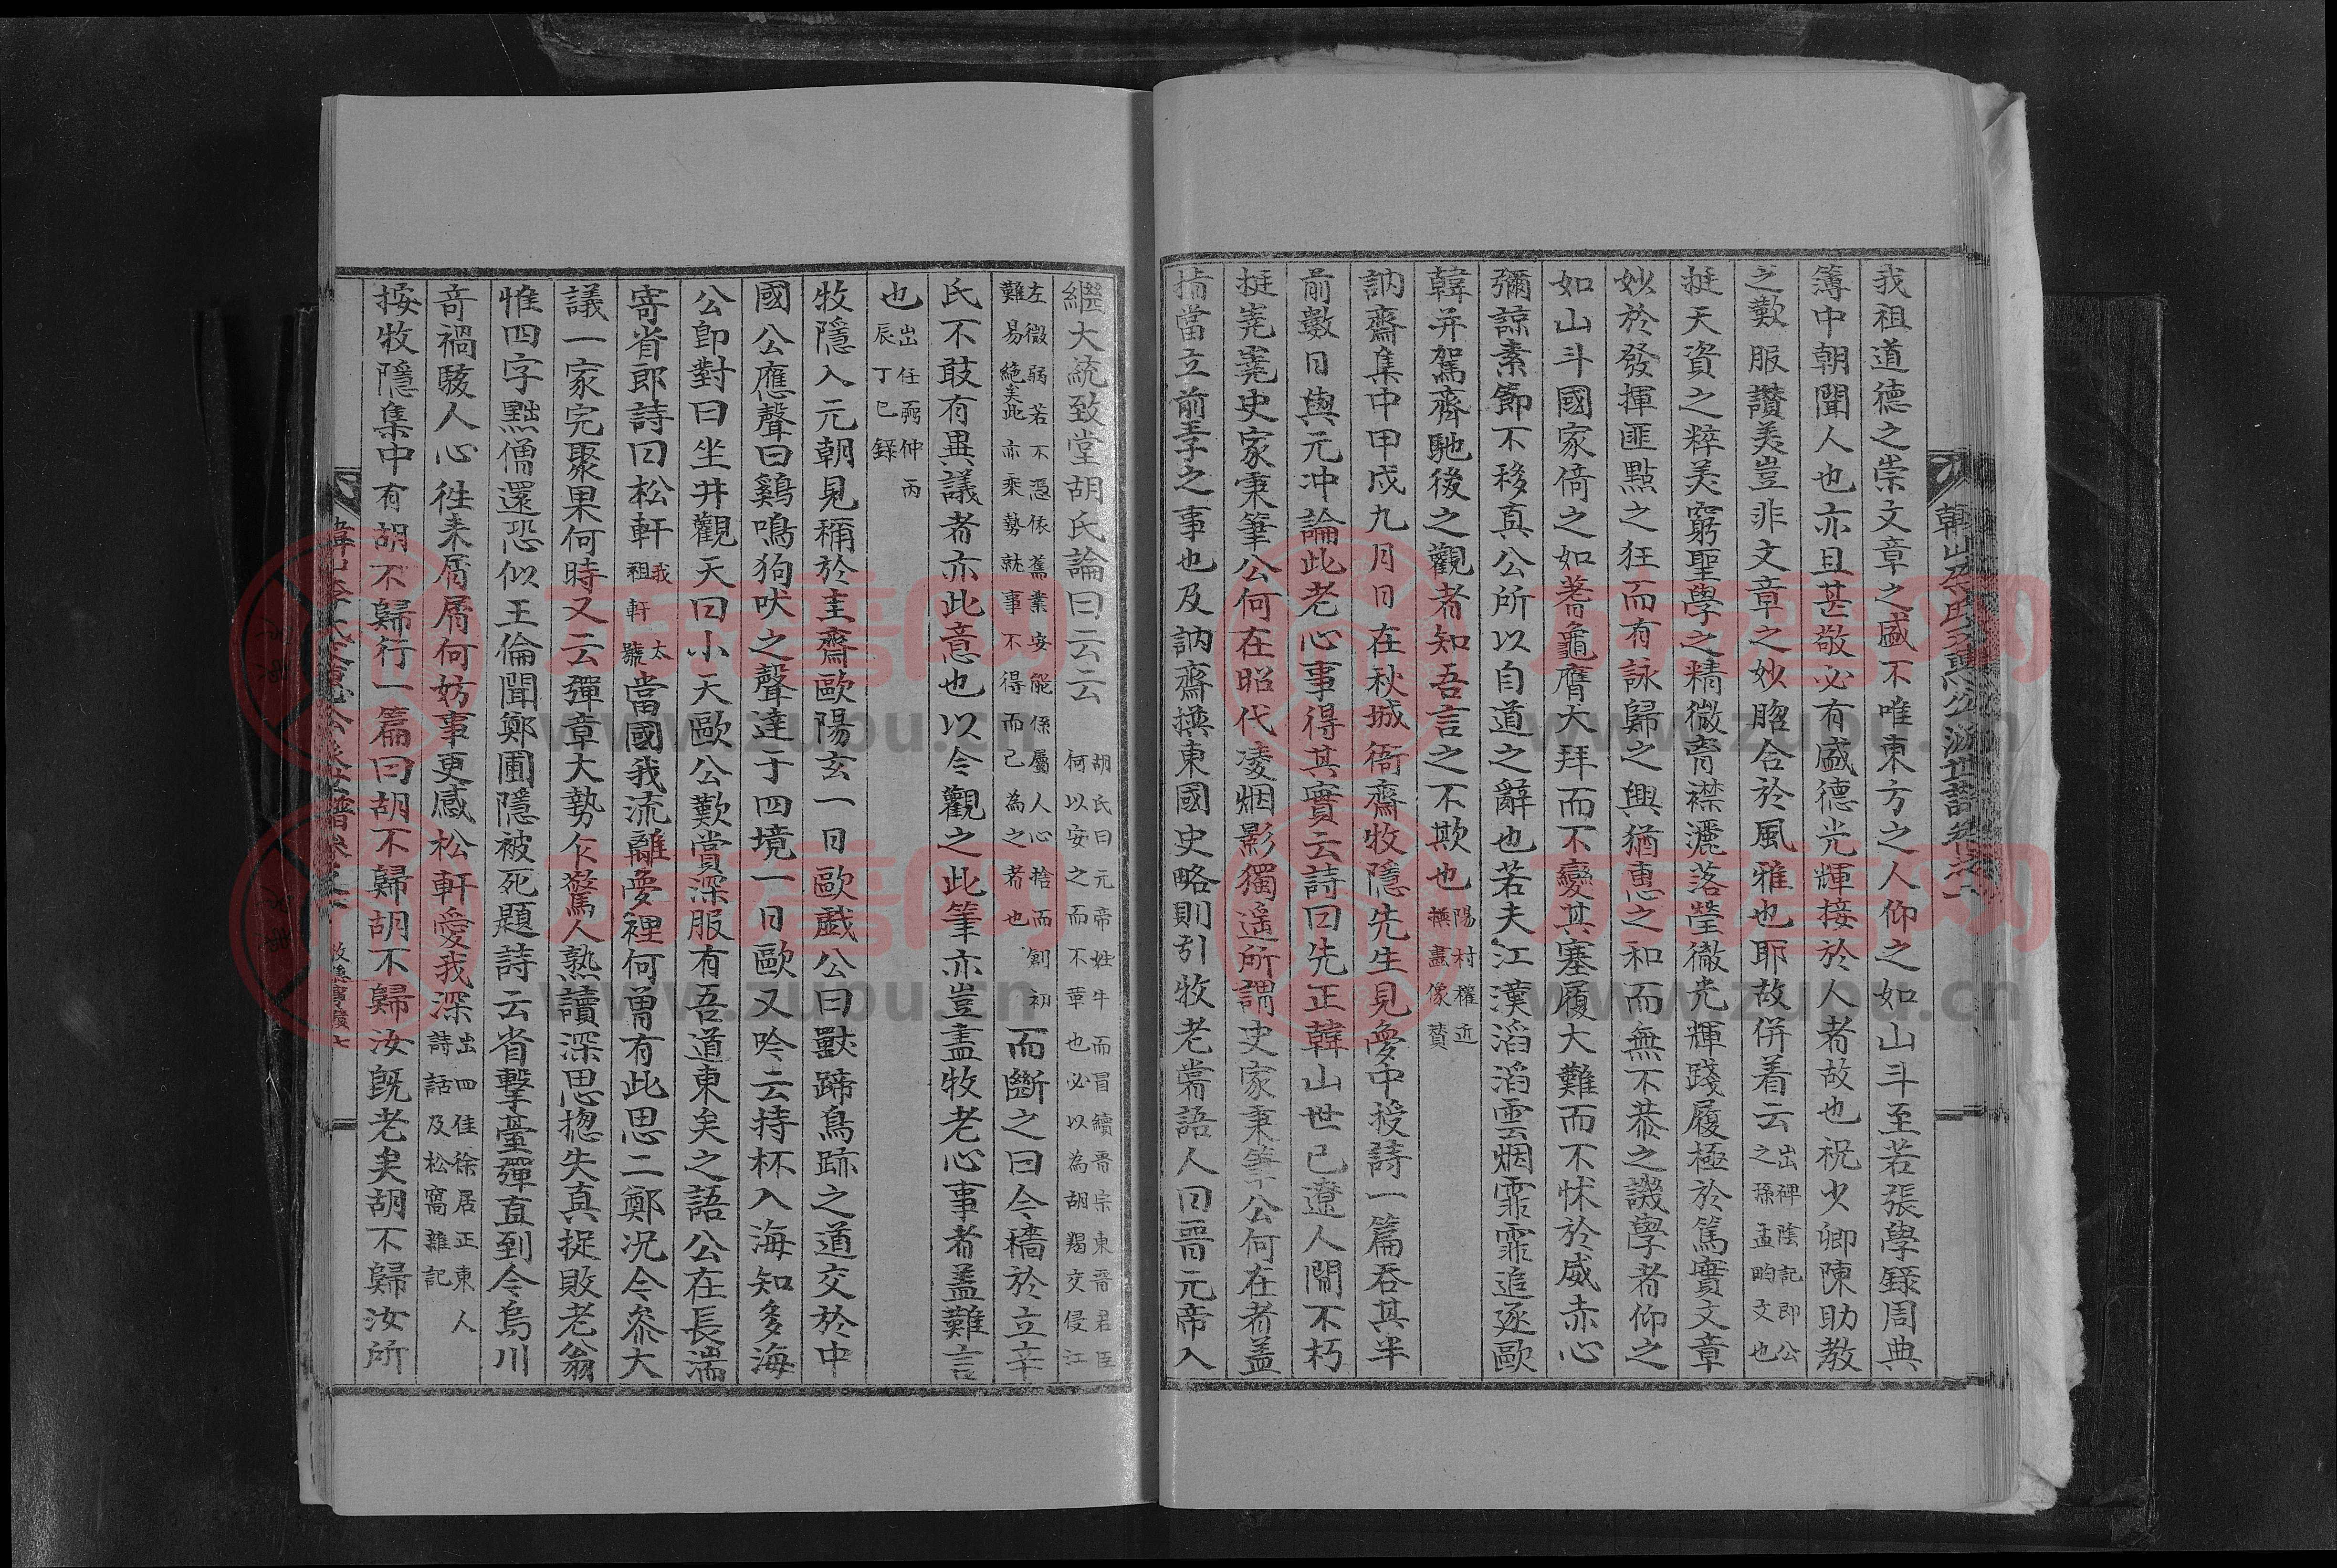 我祖道德之崇文章之盛不唯東方之人仰之如山斗至若張學錄周典
簿中朝聞人也亦且甚敬必有盛德光輝接於人者故也祝少卿陳助教
之歎服讚美豈非文章之妙脗合於風雅也耶故併着云出碑陰記即公之孫孟畇文也
挺天資之粹美窮聖學之精微胷襟灑落瑩徹光輝踐履極於篤實文章
妙於發揮匪點之狂而有詠歸之興猶惠之和而無不恭之譏學者仰之
如山斗國家倚之如蓍龜膺大拜而不變其塞履大難而不怵於威赤心
彌諒素節不移真公所以自道之辭也若夫江漢滔滔雲烟霏霏追逐歐
韓并駕齊馳後之觀者知吾言之不欺也陽村權近撫畫像贊
訥齋集中甲戌九月日在秋城衙齋牧隱先生見夢中授詩一篇呑其半
前數日與元冲論此老心事得其實云詩曰先正韓山世已遼人間不朽
挺嶤嶤史家秉筆公何在昭代凌烟影獨遥所謂史家秉筆公何在者盖
指當立前王之事也及訥齋撰東國史略則引牧老甞語人曰晋元帝入
繼大統致堂胡氏論曰云云胡氏曰元帝姓牛而冒續晋宗東晋君臣何以安之而不革也必以為胡羯交侵江
左微弱若不憑依舊業安能係屬人心捨而創初難易絶矣此亦乘勢就事不得而已為之者也而斷之曰今穡於立辛
氏不敢有異議者亦此意也以今觀之此筆亦豈盡牧老心事者盖難言
也出任弼仲丙辰丁巳錄
牧隱入元朝見稱於圭齋歐陽玄一日歐戱公曰獸蹄鳥跡之道交於中
國公應聲曰鷄鳴狗吠之聲達于四境一日歐又吟云持杯入海知多海
公卽對曰坐井觀天曰小天歐公歎賞深服有吾道東矣之語公在長湍
寄省郎詩曰松軒我太祖軒號當國我流離夢裡何曾有此思二鄭况令叅大
議一家完聚果何時又云彈章大勢乍驚人熟讀深思揔失真捉敗老翁
惟四字黠僧還恐似王倫聞鄭圃隱被死題詩云省擊臺彈直到今烏川
竒禍駭人心徃来屑屑何妨事更感松軒愛我深出四佳徐居正東人詩話及松窩雜記
按牧隱集中有胡不歸行一篇曰胡不歸胡不歸汝旣老矣胡不歸汝所
牧隱事蹟 七
族谱网
www.zupu.cn
族谱网
www.zupu.cn
族谱网
www.zupu.cn
族谱网
www.zupu.cn